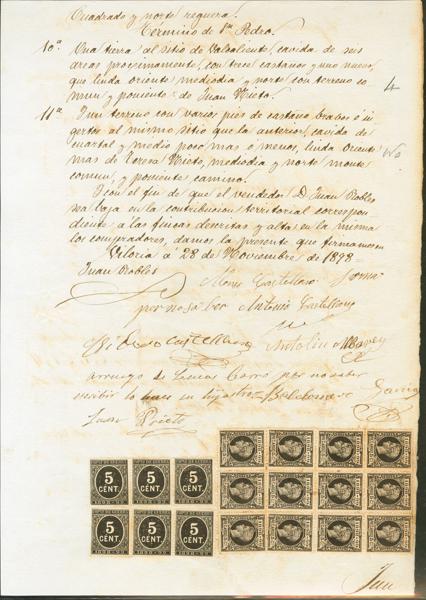 Cuadrado y norte reguera.
Termino de Sn Pedro.
10ª. Una tierra al sitio de Valsaliente, cavida de seis
areas proximamente, con trece castaños y uno nuevo,
que linda oriente mediodia y norte con terreno co
mun y poniente de Juan Nieto.
4
11ª Y un terreno con varios piés de castaño brabos é in
gertos al mismo sitio que la anterior, cavida de
cuartal y medio poco mas ó menos, linda Oriente
mas de Teresa Nieto, mediodia y norte monte
comun, y poniente camino.
Y con el fin de que el vendedor D. Juan Robles
sea baja en la contribucion territorial correspon
diente a las fincas descritas y altas en la misma
los compradores, damos la presente que firmamos en
Viloria a 28 de Noviembre de 1898
Juan Robles
Castellano
por no saber Antonio Castellano
Castellano Antolin
arruego de Lucas por no saber
escribir lo hace
Juan Prieto
5 CENT. 5 CENT. 5 CENT.
5 CENT. 5 CENT. 5 CENT.